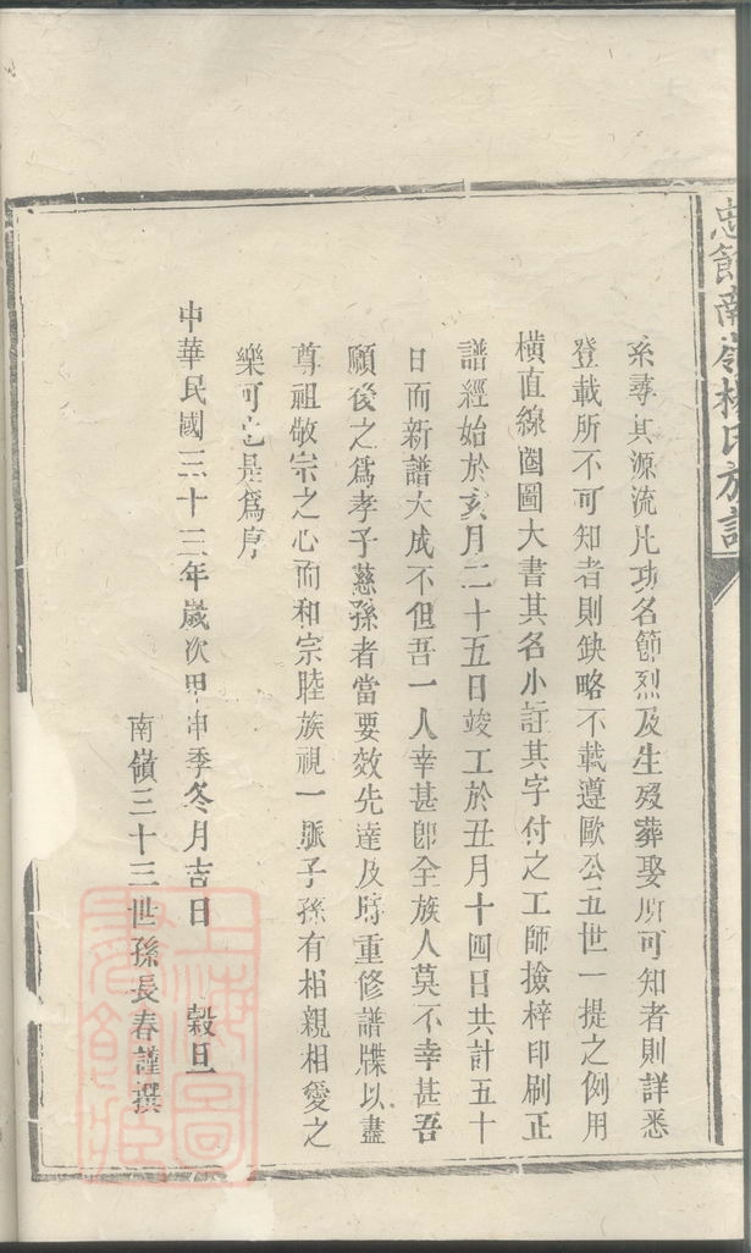 忠節南嶺楊氏族譜
系尋其源流凡功名節烈及生歿葬娶所可知者則詳悉
登載所不可知者則缺略不載遵歐公五世一提之例用
橫直線圈圖大書其名小註其字付之工師撿梓印刷正
譜經始於亥月二十五日竣工於丑月十四日共計五十
日而新譜大成不但吾一人幸甚卽全族人莫不幸甚吾
願後之爲孝子慈孫者當要效先達及時重修譜牒以盡
尊祖敬宗之心而和宗睦族視一脈子孫有相親相愛之
樂可也是爲序
中華民國三十三年歲次甲申季冬月吉日 穀旦
南嶺三十三世孫長春謹撰
上海圖書館藏